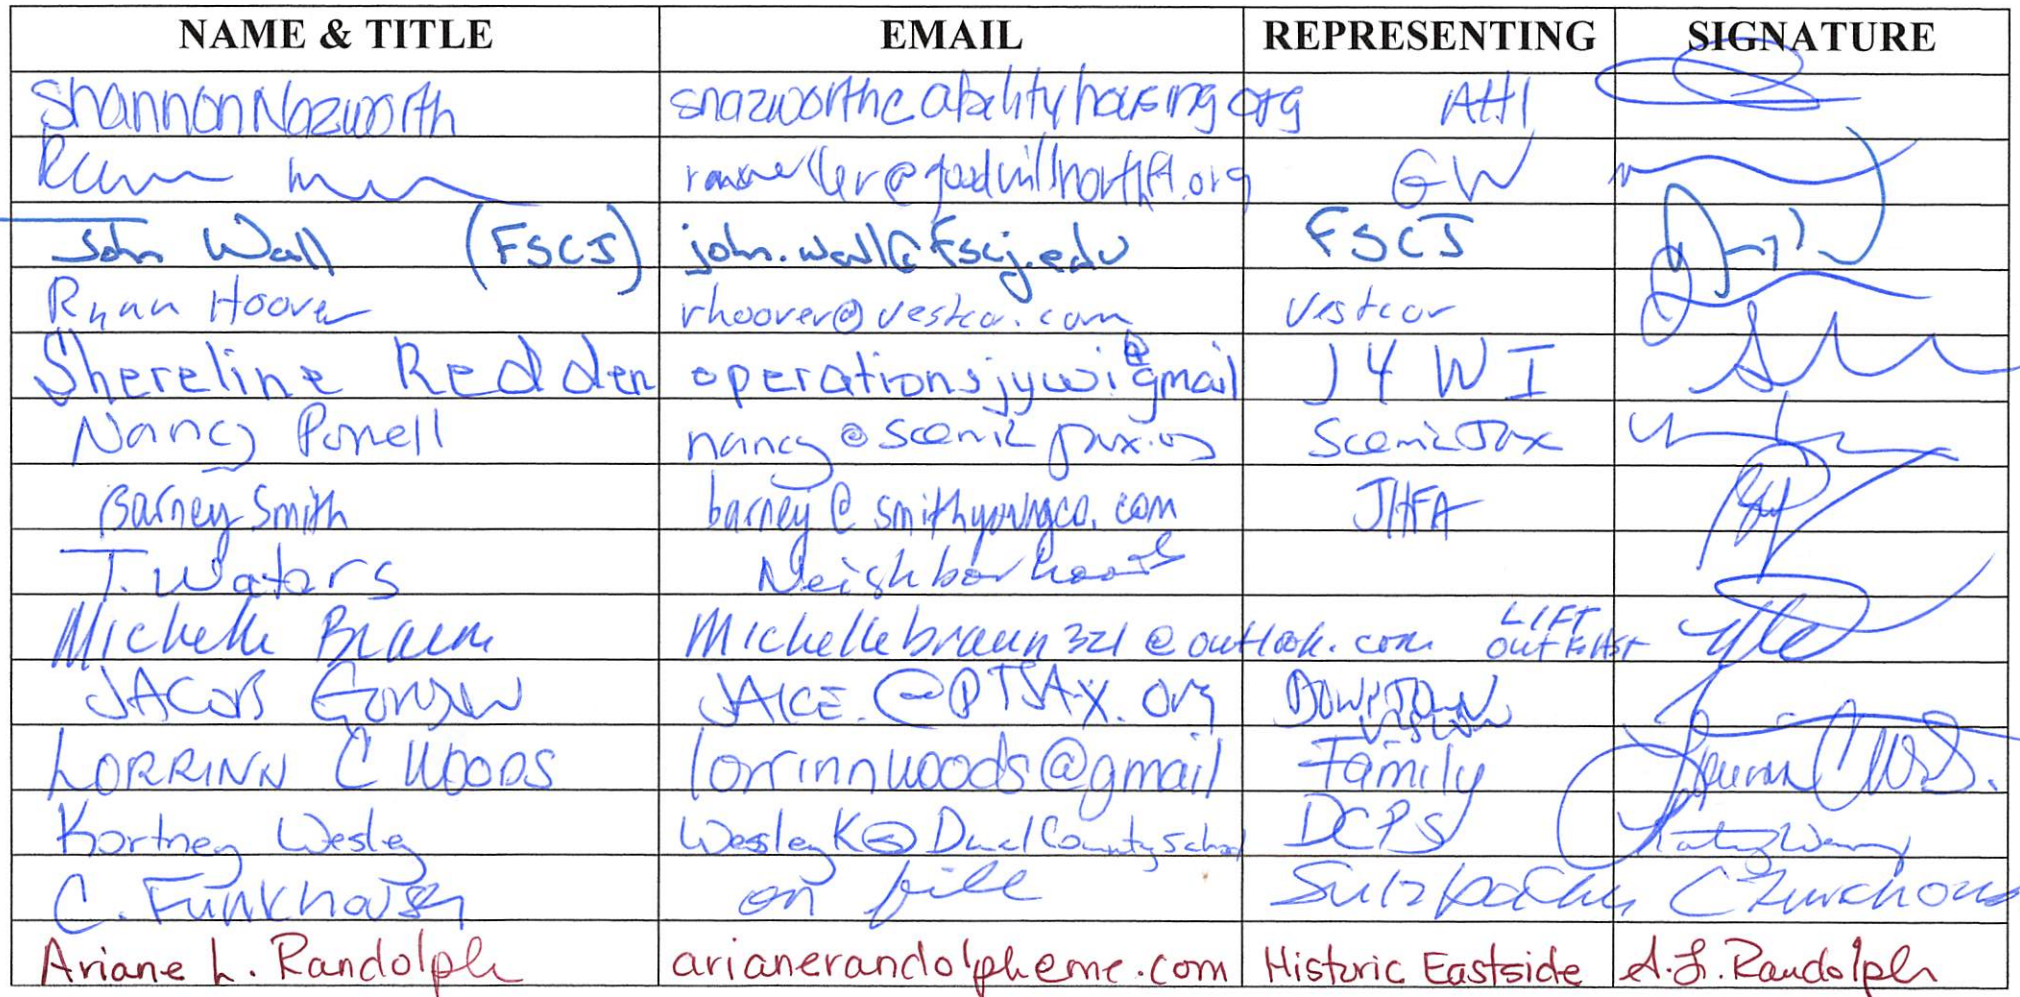 NAME & TITLE EMAIL REPRESENTING SIGNATURE
Shannon Nazworth snazworth@abilityhousing.org AHI
@goodwillnorthfl.org GW
John Wall (FSCJ) john.wall@fscj.edu FSCJ
Ryan Hoover rhoover@vestcor.com Vestcor
Shereline Redden operationsjywi@gmail J4WI
Nancy Powell nancy@scenicjax.org ScenicJax
Barney Smith barney@smithyoungco.com JHFA
T. Waters Neighborhoods
Michelle Braun Michellebraun321@outlook.com LIFT
OUT EAST
JACOB GORDON JAKE.@DTJAX.org DOWNTOWN
VISION
LORRINN C WOODS lorrinnwoods@gmail Family
Kortney Wesley WesleyK@DuvalCountySchool DCPS
C. Funkhouser on file Sulzbacher C Funkhouse
Ariane L. Randolph arianerandolph@me.com Historic Eastside A.L. Randolph